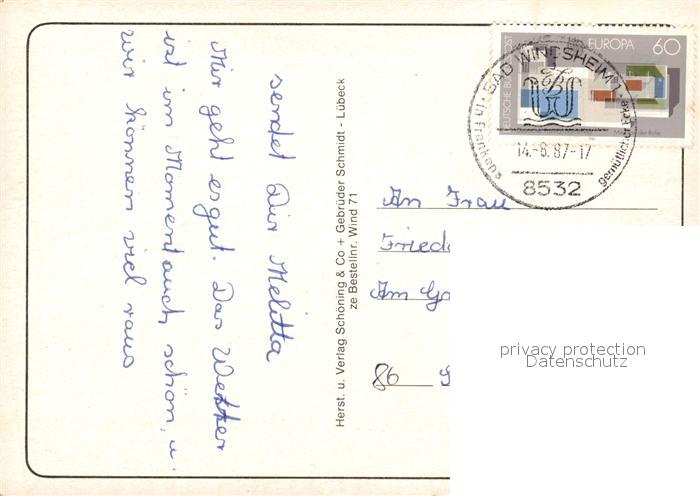 sendet Dir Melitta
Mir geht es gut. Das Wetter
ist im Moment auch schön, u.
wir können viel raus
Herst. u. Verlag Schöning & Co + Gebrüder Schmidt - Lübeck
ze Bestellnr. Wind 71
EUROPA 60
DEUTSCHE BU POST
BAD WINDSHEIM 1
in Frankens gemütlicher Ecke
14.-8.87-17
8532
An Frau
Fried
Am G
86
privacy protection
Datenschutz